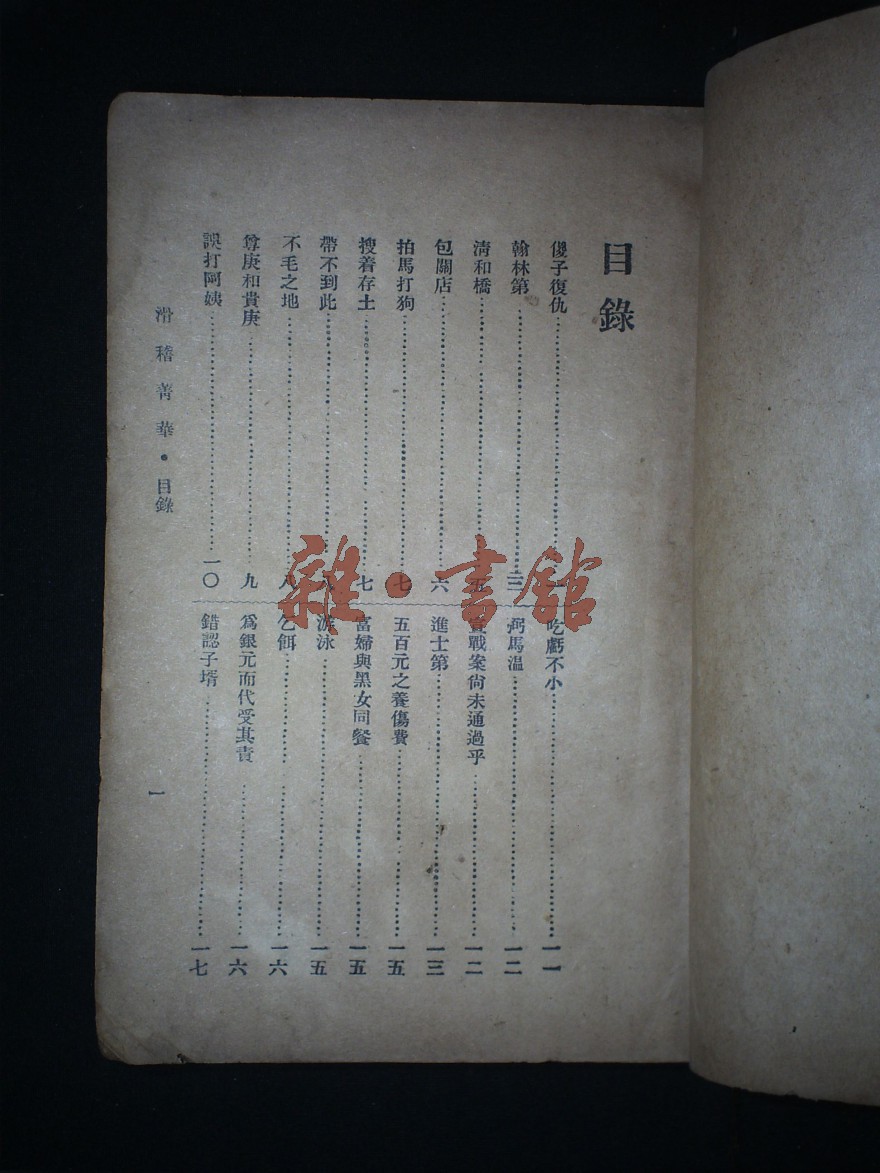 目錄
傻子復仇
翰林第……三
淸和橋……五
包關店……六
拍馬打狗……七
搜着存土……七
帶不到此……八
不毛之地……八
尊庚和貴庚……九
誤打阿姨……一〇
吃虧不小……一一
弼馬温……一二
戰案尙未通過乎……一二
進士第……一三
五百元之養傷費……一五
富婦與黑女同餐……一五
游泳……一五
乞餌……一六
爲銀元而代受其責……一六
錯認子壻……一七
滑稽菁華•目錄
一
雜•書館